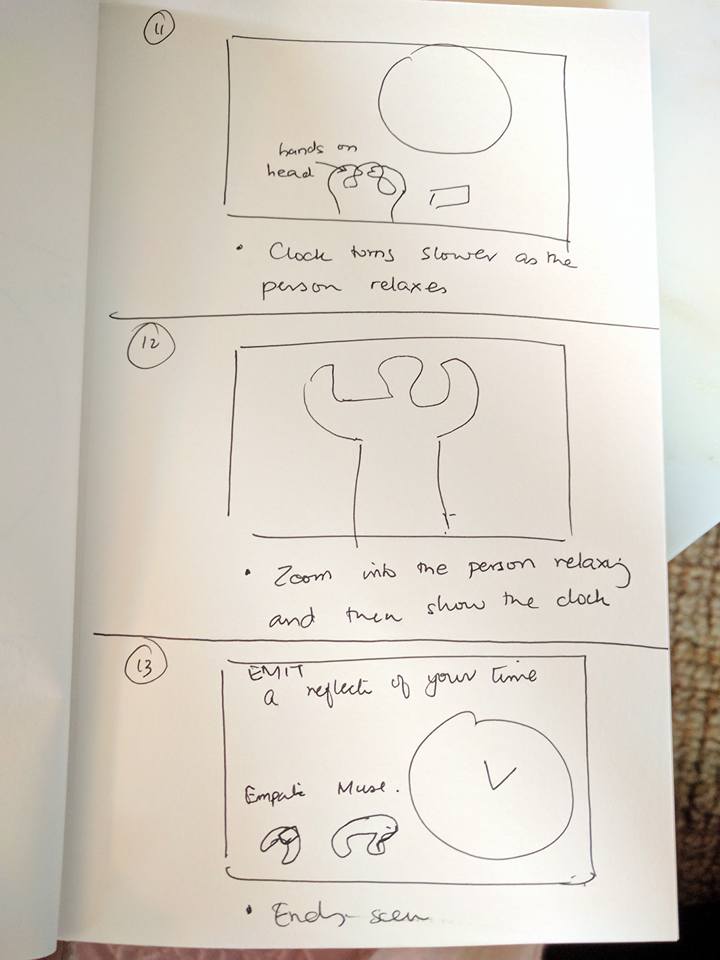 11
hands on
head
• Clock turns slower as the
person relaxes
12
• Zoom into the person relaxing
and then show the clock
13
EMIT
a reflecti of your time
Empatic Muse.
• Endy-scen